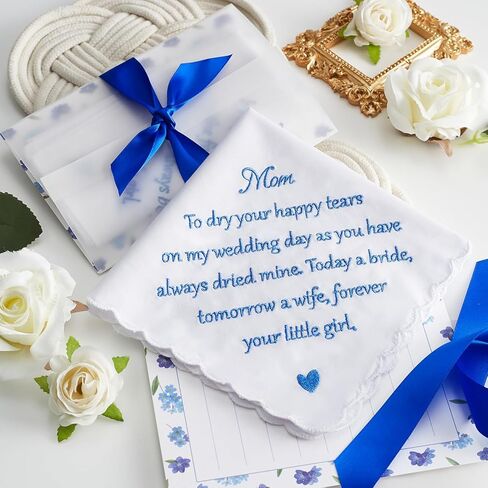 Mom
To dry your happy tears
on my wedding day as you have
always dried mine. Today a bride,
tomorrow a wife, forever
your little girl.